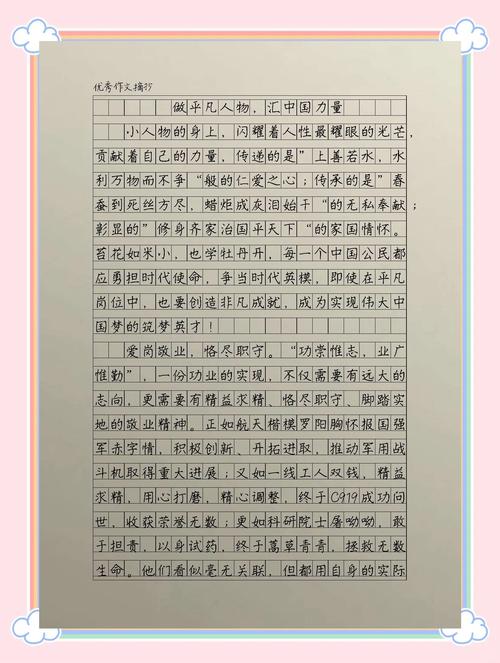 优秀作文摘抄
做平凡人物，汇中国力量
小人物的身上，闪耀着人性最耀眼的光芒，
贡献着自己的力量，传递的是”上善若水，水
利万物而不争“般的仁爱之心；传承的是”春
蚕到死丝方尽，蜡炬成灰泪始干“的无私奉献；
彰显的”修身齐家治国平天下“的家国情怀。
苔花如米小，也学牡丹开，每一个中国公民都
应勇担时代使命，争当时代英模，即使在平凡
岗位中，也要创造非凡成就，成为实现伟大中
国梦的筑梦英才！
爱岗敬业，恪尽职守。“功崇惟志，业广
惟勤”，一份功业的实现，不仅需要有远大的
志向，更需要有精益求精、恪尽职守、脚踏实
地的敬业精神。正如航天楷模罗阳胸怀报国强
军赤子情，积极创新、开拓进取，推动军用战
斗机取得重大进展；又如一线工人双钱，精益
求精，用心打磨，精心调整，终于C919成功问
世，收获荣誉无数；更如科研院士屠呦呦，敢
于担责，以身试药，终于蒿草青青，拯救无数
生命。他们看似毫无关联，但都用自身的实际